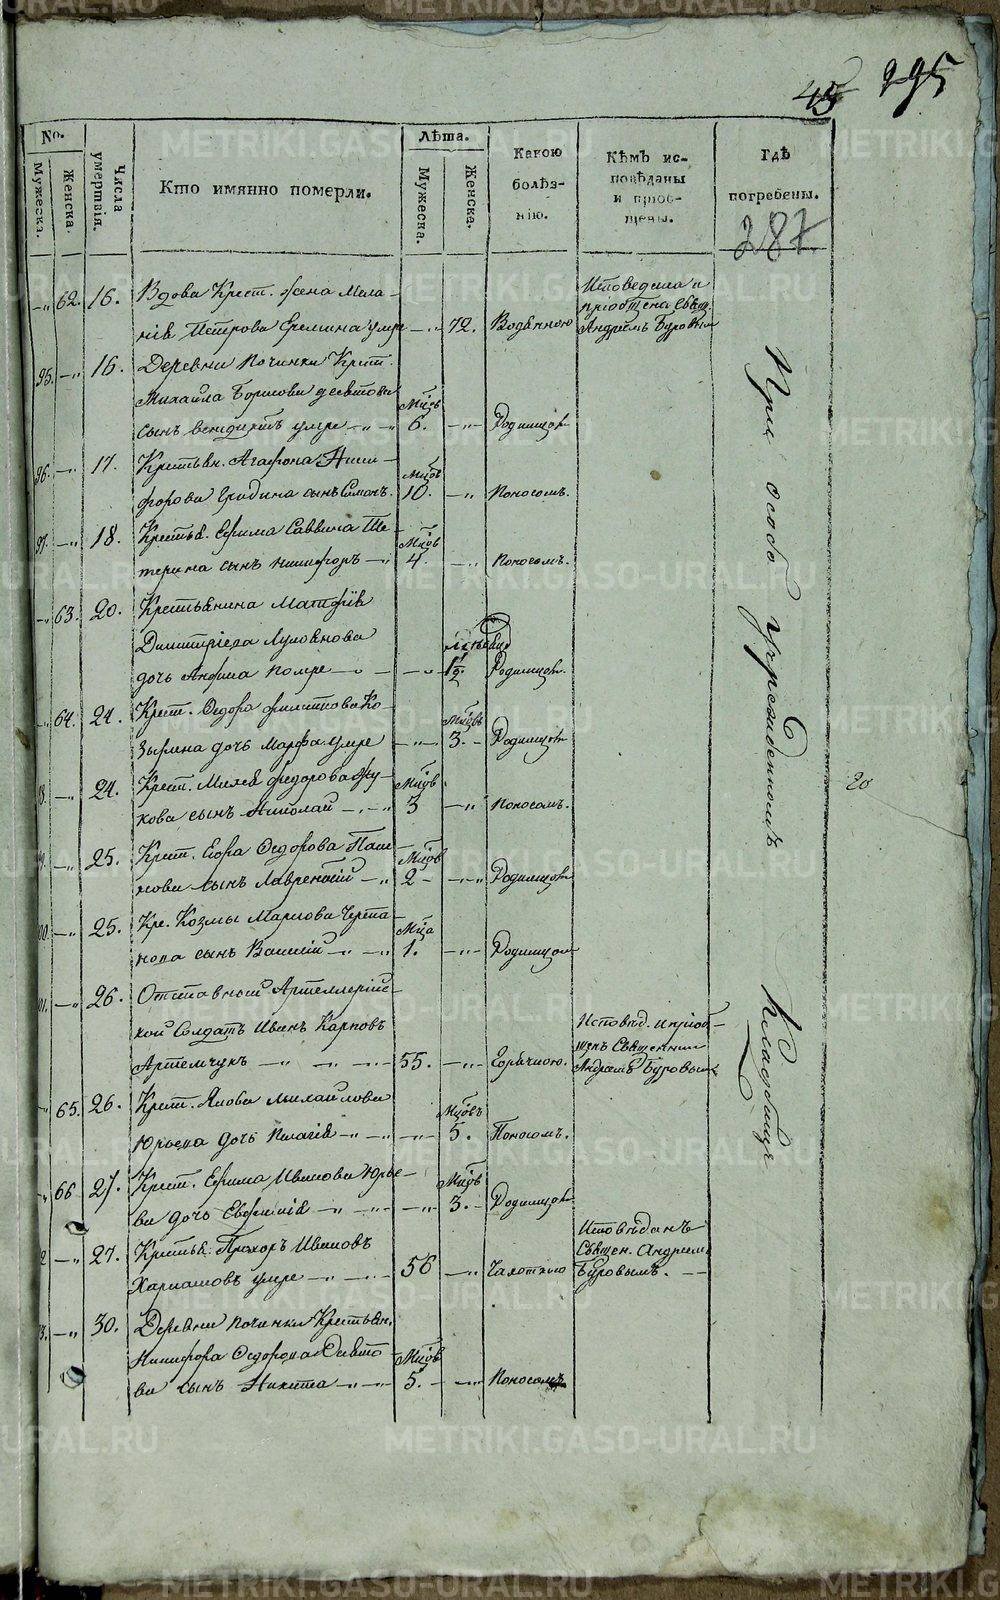 45 295
No.
Мужеска.
Женска.
Числа умертвія.
Кто имянно померли.
Лѣта.
Мужеска.
Женска.
Какою болѣз-
нію.
Кѣмъ ис-
повѣданы
и пріоб-
щены.
Гдѣ
погребены.
287
62. 16. Вдова Крест. жена Мела-
нія Петрова Еремина умре 72. Водяною
Исповедана и
пріобщена Свящ.
Андреемъ Буровым
95. 16. Деревни Починки Крест.
Михайла Борисова
сынъ умре Мцовъ 6. Родимцом
96. 17. Крестьян. Агафона Ники-
форова сынъ Симонъ. Мцовъ 10. Поносомъ.
97. 18. Крестья. Ефима Саввина Ще-
терина сынъ Никифоръ Мцовъ 4. Поносомъ.
63. 20. Крестьянина Матфія
Димитріева
дочь Анфиса помре 1 1/2 Родимцом.
64. 24. Крест. Федора Филиппова Ко-
зырина дочь Марфа умре Мцовъ 3. Родимцом
24. Крест. Федорова Жу-
кова сынъ Николай Мцовъ 3 Поносомъ.
25. Крест. Егора Федорова
сынъ Лаврентій Мцовъ 2 Родимцом
25. Кре. Козмы Маркова
сынъ Василій Мца 1. Родимцом
26. Отставный Артиллерій-
ской Солдатъ Иванъ Карповъ
Артемчукъ 55. Горячкою.
Исповѣд. и пріоб-
щенъ Священник
Андреемъ Буровым
65. 26. Крест. Якова Михайлова
Юрьева дочь Пелагія Мцовъ 5. Поносомъ.
66 27. Крест. Ефима Иванова Юрье-
ва дочь Евфимія Мцовъ 3. Родимцом
27. Крестья. Прохоръ Ивановъ
умре 56 Чахоткою
Исповѣданъ
Священ. Андреем
Буровымъ.
30. Деревни Починки Крестьян.
Никифора Федорова
сынъ Никита Мцовъ 5. Поносомъ
При особо учрежденномъ
Кладбище
20
METRIKI.GASO-URAL.RU